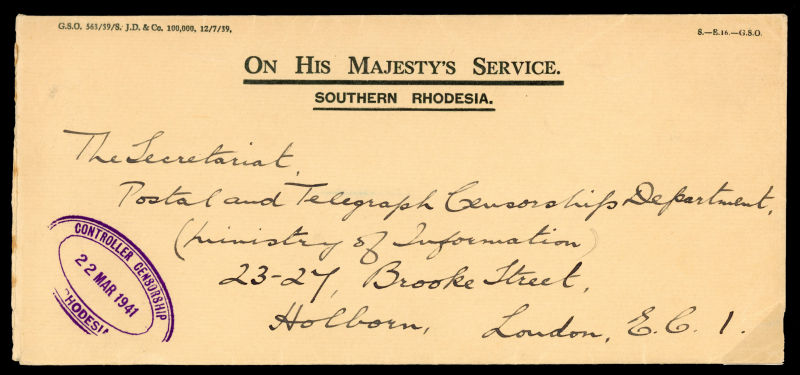 G.S.O. 563/39/S. J.D. & Co. 100,000, 12/7/39,
S.—E.16.—G.S.O.
ON HIS MAJESTY'S SERVICE.
SOUTHERN RHODESIA.
The Secretariat,
Postal and Telegraph Censorships Department,
(Ministry of Information)
23-27, Brooke Street,
Holborn, London, E.C. 1.
CONTROLLER CENSORSHIP
22 MAR 1941
RHODESIA